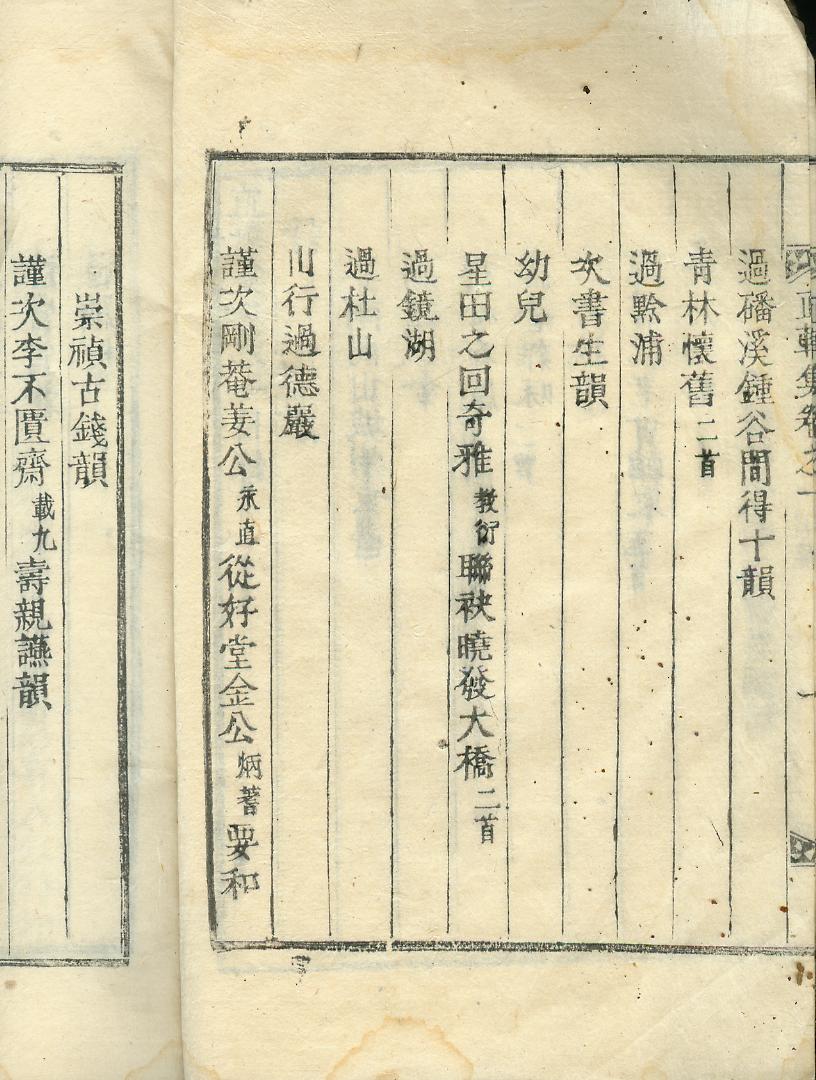 集卷之一
過磻溪鍾谷間得十韻
青林懷舊二首
過黔浦
次書生韻
幼兒
星田之回奇雅教衍聯袂曉發大橋二首
過鏡湖
過杜山
川行過德巖
謹次剛菴姜公永直從好堂金公炳蓍要和
崇禎古錢韻
謹次李不匱齋載九壽親讌韻